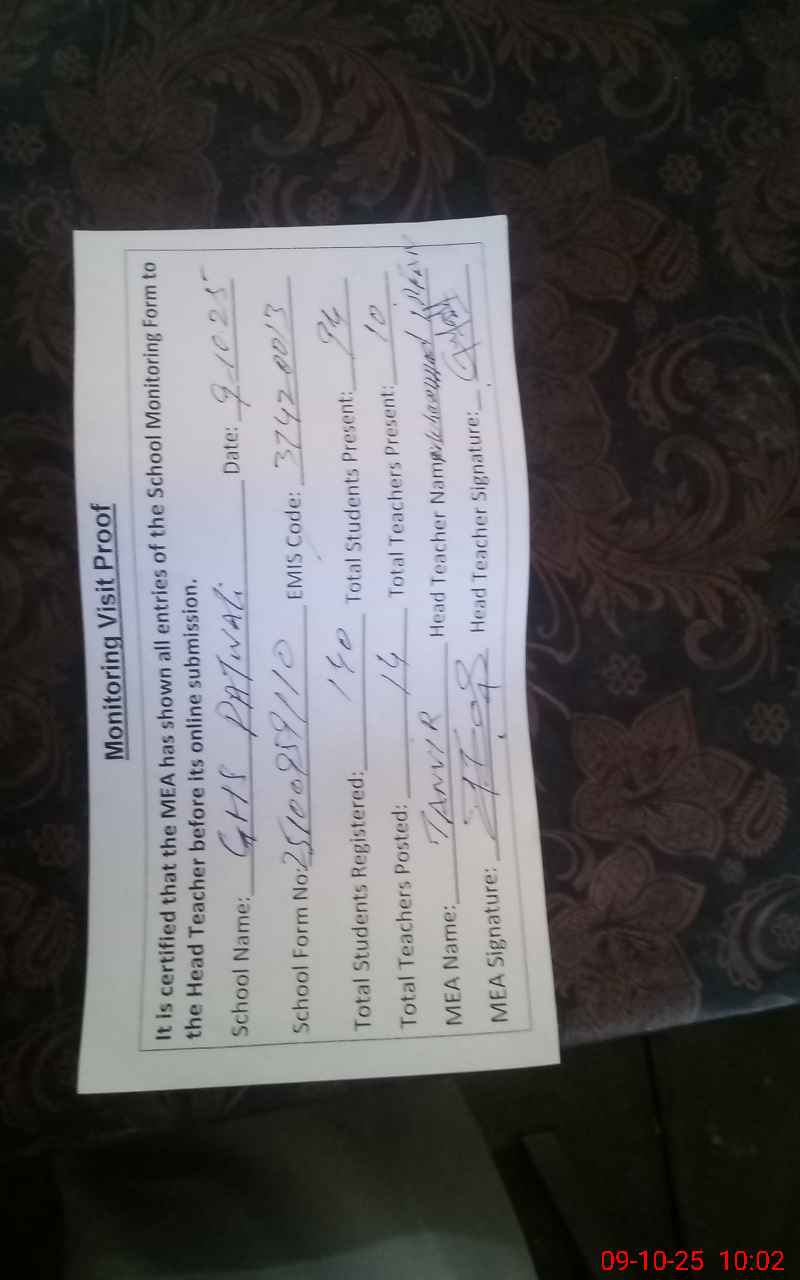 Monitoring Visit Proof
It is certified that the MEA has shown all entries of the School Monitoring Form to
the Head Teacher before its online submission.
School Name: GHS PATWALI Date: 9-10-25
School Form No: 25100959110 EMIS Code: 37420013
Total Students Registered: 140 Total Students Present: 94
Total Teachers Posted: 14 Total Teachers Present: 10
MEA Name: TANVIR Head Teacher Name Muhammad
MEA Signature: Head Teacher Signature:
09-10-25 10:02